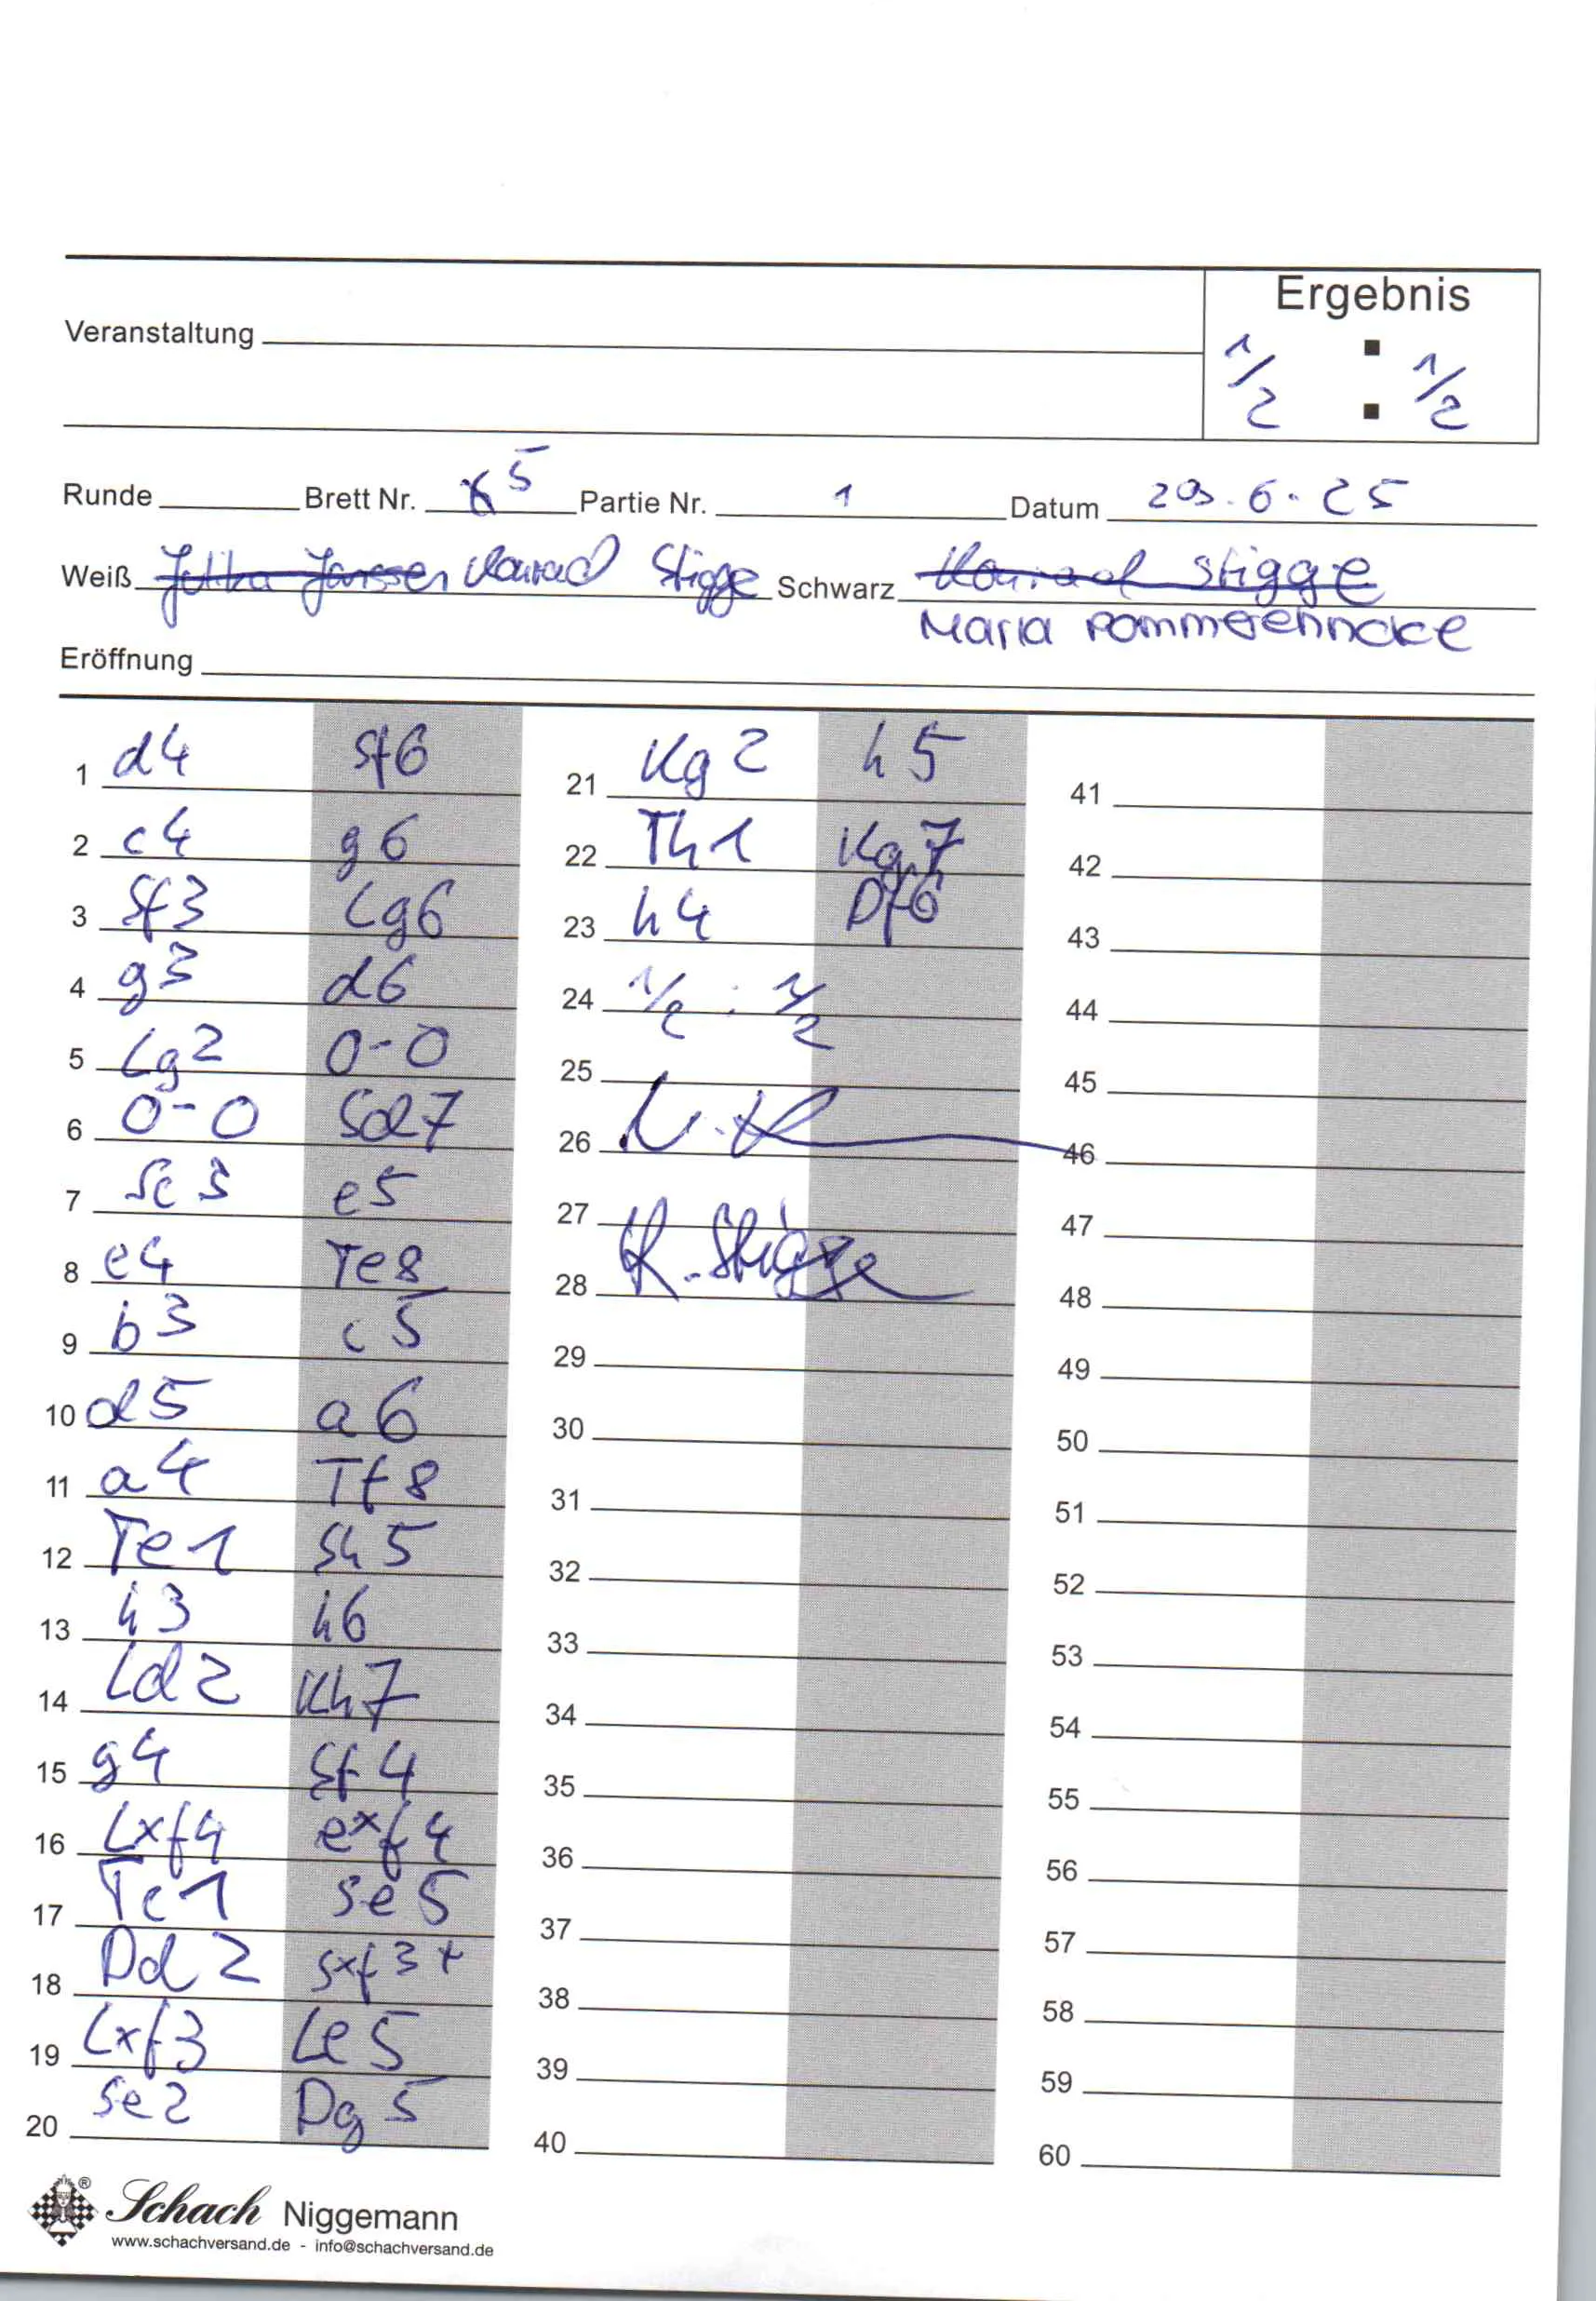 Ergebnis
Veranstaltung
1/2 : 1/2
Runde Brett Nr. 5 Partie Nr. 1 Datum 29.6.25
Weiß Konrad Stigge Schwarz Konrad Stigge
Maria Pommerenncke
Eröffnung
1 d4 Sf6 21 Kg2 h5 41
2 c4 g6 22 Th1 Kg7 42
3 Sf3 Lg6 23 h4 Df6 43
4 g3 d6 24 1/2 : 1/2 44
5 Lg2 0-0 25 45
6 0-0 Sd7 26 46
7 Sc3 e5 27 47
8 e4 Te8 28 K. Stigge 48
9 b3 c5 29 49
10 d5 a6 30 50
11 a4 Tf8 31 51
12 Te1 Sh5 32 52
13 h3 h6 33 53
14 Ld2 Kh7 34 54
15 g4 Sf4 35 55
16 Lxf4 exf4 36 56
17 Tc1 Se5 37 57
18 Dd2 Sxf3+ 38 58
19 Lxf3 Le5 39 59
20 Se2 Dg5 40 60
Schach Niggemann
www.schachversand.de - info@schachversand.de